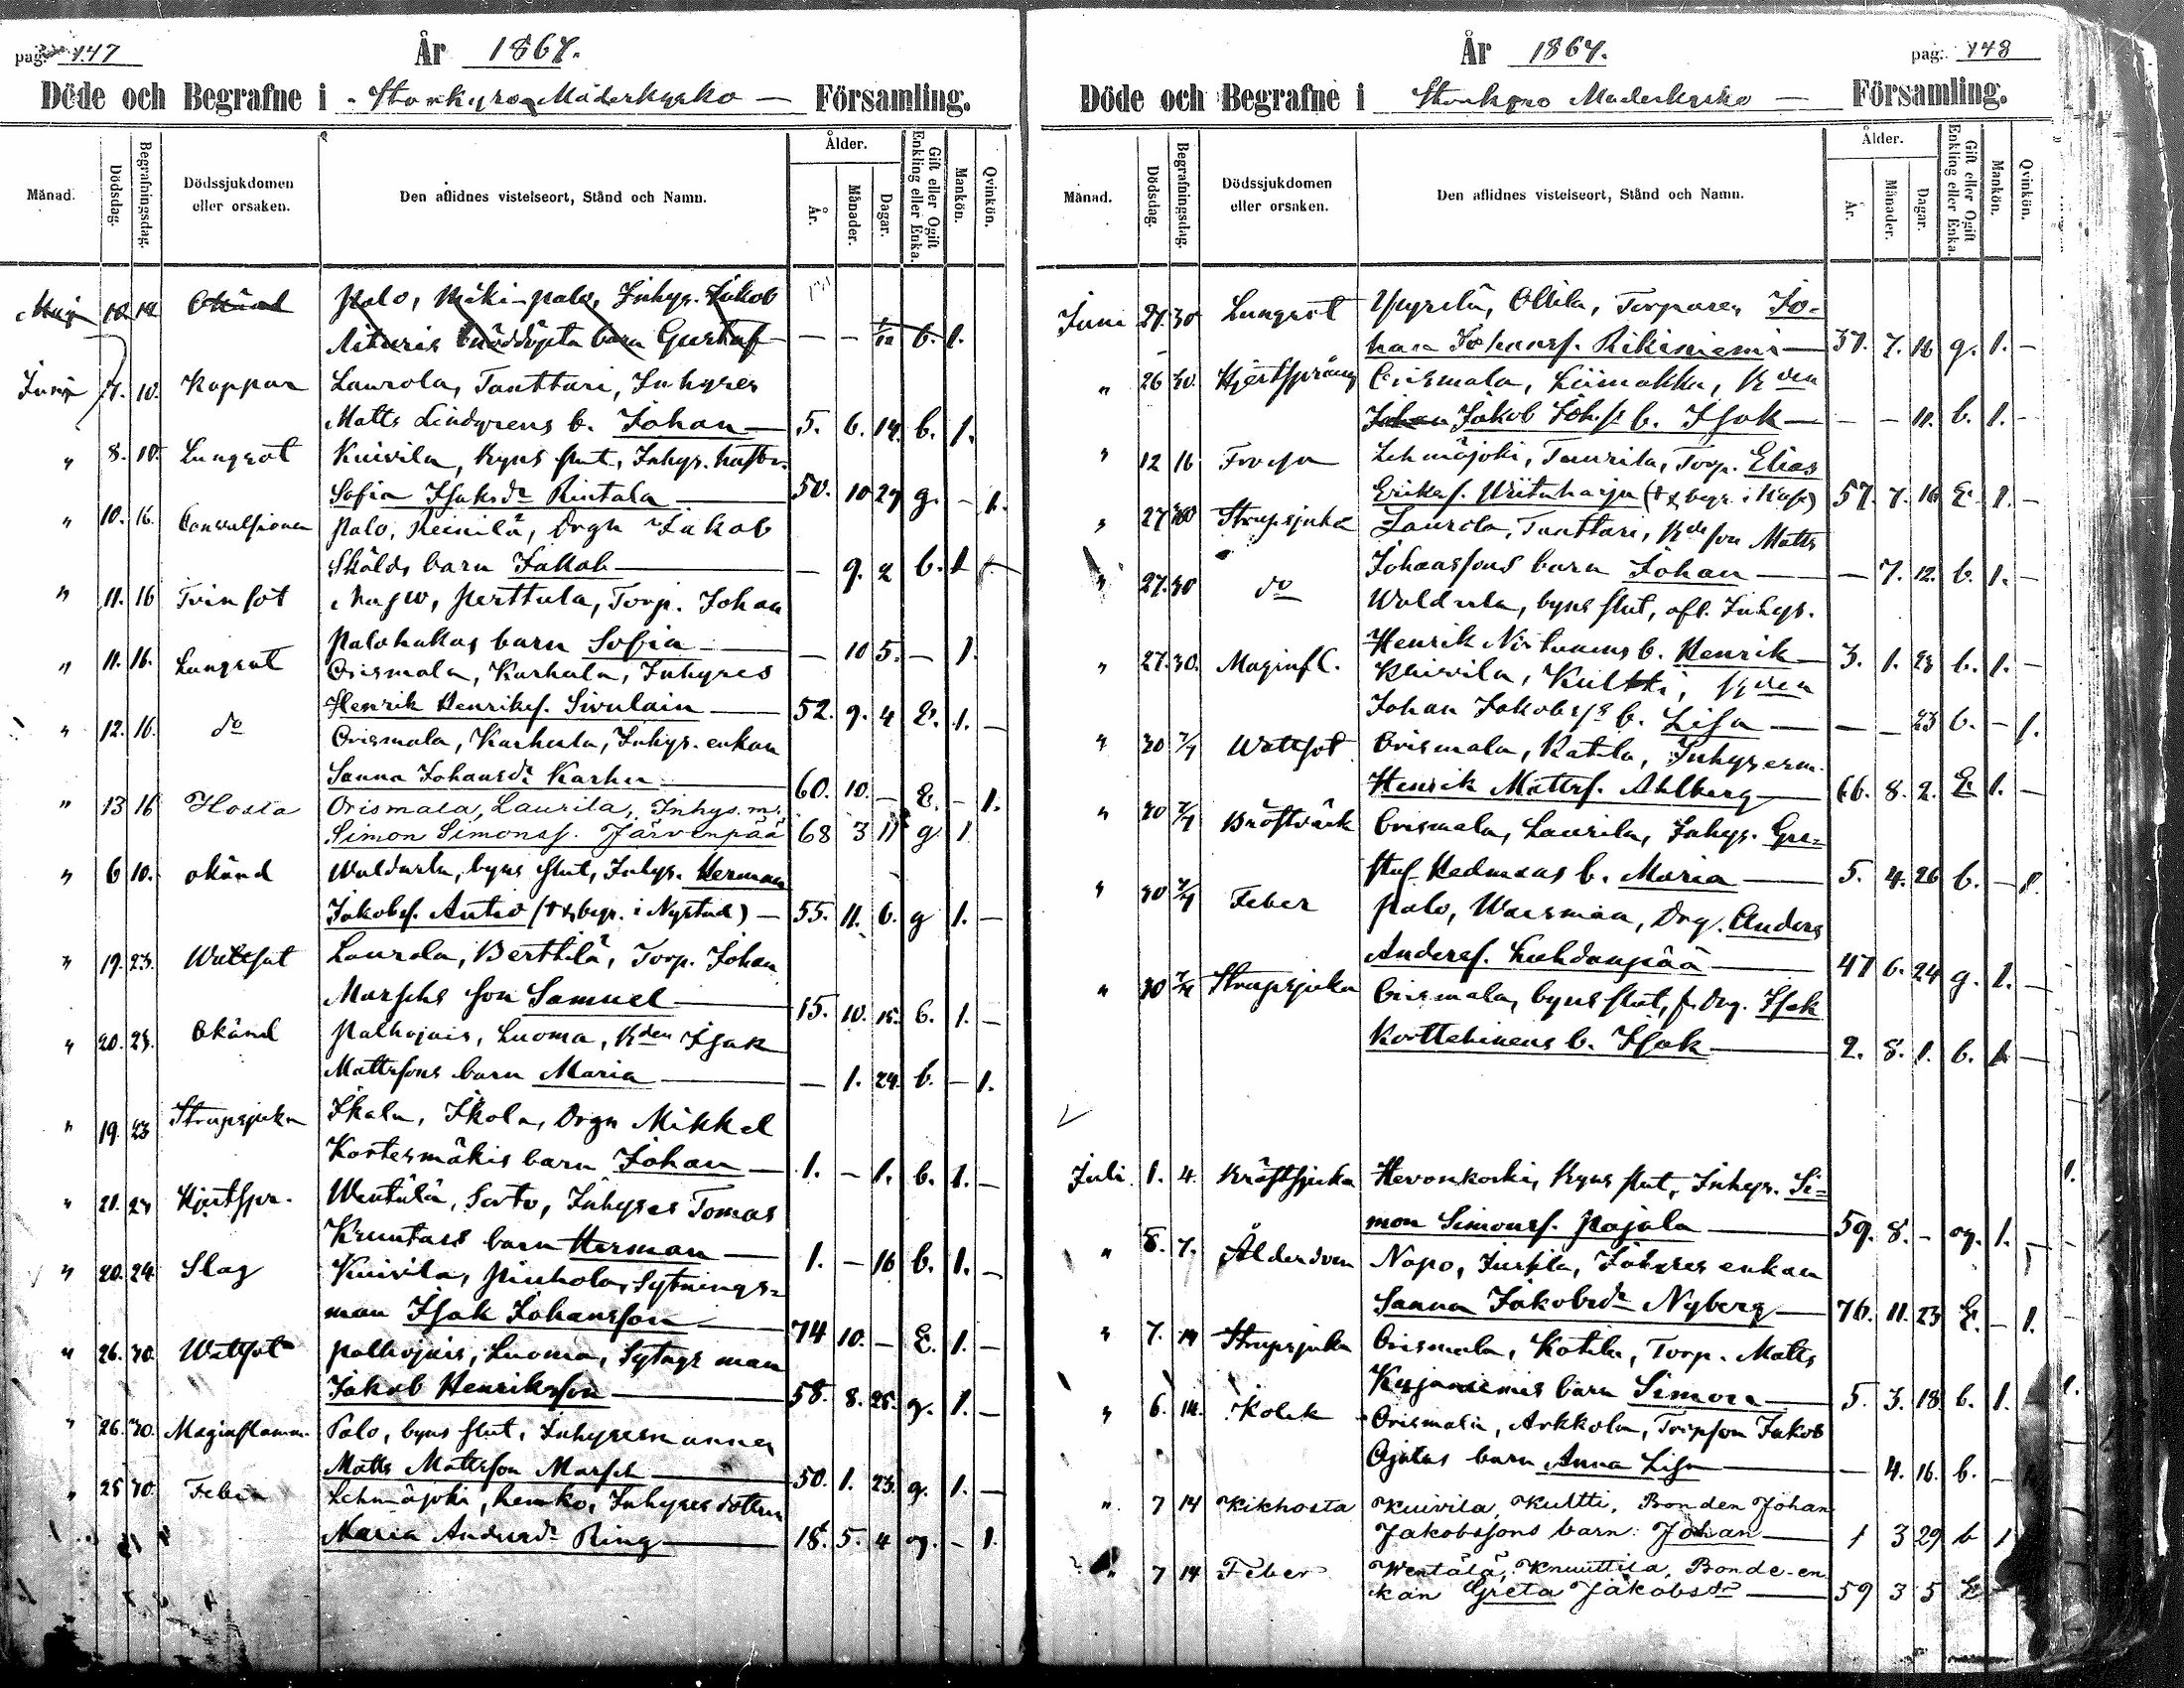 pag: 147
År 1867.
Döde och Begrafne i Storkyro Moderkyrko Församling.
Månad. Dödsdag. Begrafningsdag. Dödssjukdomen eller orsaken. Den aflidnes vistelseort, Stånd och Namn. Ålder. År. Månader. Dagar. Gift eller Ogift Enkling eller Enka. Mankön. Qvinkön.
Maji 10 12 Okänd Palo, Mäki-palo, Inhys. Jakob
barn Gustaf — — b. 1.
Juni 7. 10. Koppor Laurola, Tanttari, Inhyses
Matts Lindgrens b. Johan — 5. 6. 14. b. 1.
" 8. 10. Lungsot Kuivila, Byns slut, Inhys. hustr.
Sofia Isaksdr Rintala — 50. 10 27 g. — 1.
" 10. 16. Convulsioner Palo, Reinilä, Drgn Jakob
Skölds barn Jakob — — 9. 2 b. 1
" 11. 16 Tvinsot Napo, Perttula, Torp. Johan
Palohukas barn Sofia — — 10 5. — 1.
" 11. 16. Lungsot Orismala, Karhula, Inhyses
Henrik Henriksf. Sivulain — 52. 9. 4 E. 1. —
" 12. 16. do Orismala, Karhula, Inhys. enkan
Sanna Johansdr Karhu — 60. 10. — E. — 1.
" 13 16 Hosta Orismala, Laurila, Inhys. m.
Simon Simonss. Järvenpää 68 3 11 g 1
" 6 10. okänd Waldarla, byns slut, Inhys. Herman
Jakobsf. Antio († & begr. i Nystad) — 55. 11. 6. g 1. —
" 19. 23. Wattsot Laurola, Berttilä, Torp. Johan
Marschs son Samuel — 15. 10. 15. b. 1. —
" 20. 23. Okänd Palhojais, Luoma, Bden Isak
Mattssons barn Maria — — 1. 24. b. — 1.
" 19. 23 Strupsjuka Ikala, Ikola, Drgn Mikkel
Kortesmäkis barn Johan — 1. — 1. b. 1. —
" 21. 24 Hjertspr. Wentälä, Sarto, Inhyses Tomas
barn Herman — 1. — 16 b. 1. —
" 20. 24. Slag Kuivila, Pinhola, Sytnings-
man Isak Johansson — 74 10. — E. 1. —
" 26. 30. Wattsot Palhojais, Luoma, Sytngs man
Jakob Henriksson — 58. 8. 25. g. 1. —
" 26. 30. Maginflamm. Palo, byns slut, Inhysesmannen
Matts Mattsson Marsch — 50. 1. 23. g. 1. —
" 25 30. Feber Lehmäjoki, Inhyses dottern
Maria Andersdr Ring — 18. 5. 4 og. — 1.
År 1867.
pag: 148
Döde och Begrafne i Storkyro Moderkyrko Församling.
Månad. Dödsdag. Begrafningsdag. Dödssjukdomen eller orsaken. Den aflidnes vistelseort, Stånd och Namn. Ålder. År. Månader. Dagar. Gift eller Ogift Enkling eller Enka. Mankön. Qvinkön.
Juni 27. 30 Lungsot Ollila, Torparen Jo-
han Johansf. Rikiniemi — 37. 7. 16 g. 1. —
" 26 30. Hjertsprång Orismala, Liimakka, Bden
Johan Jakob Johss b. Isak — — — 11. b. 1. —
" 12 16 Frossa Lehmäjoki, Taurila, Torp. Elias
Eriksf. 57. 7. 16 E. 1. —
" 27 30 Strupsjuka Laurola, Tanttari, Bdeson Matts
Johanssons barn Johan — — 7. 12. b. 1. —
" 27. 30 do Waldarla, byns slut, afl. Inhys.
Henrik b. Henrik — 3. 1. 23 b. 1. —
" 27. 30. Maginfl. Kuivila, Kultti, Bden
Johan Jakobss b. Lisa — — — 23 b. — 1.
" 30 7/7 Wattsot Orismala, Katila, Inhysesm.
Henrik Mattsf. Ahlberg — 66. 8. 2. E. 1. —
" 30 7/7 Bröstvärk Orismala, Laurila, Inhys. Gu-
staf Hedmans b. Maria — 5. 4. 26 b. — 1.
" 30 7/7 Feber Palo, Wareman, Drg. Anders
Andersf. Luhdanpää — 47 6. 24 g. 1. —
" 30 7/7 Strupsjuka Orismala, byns slut, f. Drg. Isak
b. Isak — 2. 8. 1. b. 1. —
Juli 1. 4. Bröstsjuka Hevonkoski, Byns slut, Inhys. Si-
mon Simonsf. Pajala — 59. 8. — og. 1. —
" 5. 7. Ålderdom Napo, Jussila, Inhyses enkan
Sanna Jakobsdr Nyberg — 76. 11. 23 E. — 1.
" 7. 14 Strupsjuka Orismala, Katila, Torp. Matts
barn Simon — 5. 3. 18 b. 1.
" 6. 14. Kolik Orismala, Arkkola, Torpson Jakob
Ojalas barn Anna Lisa — — 4. 16. b. —
" 7 14 Kikhosta Kuivila, Kultti, Bonden Johan
Jakobssons barn: Johan — 1 3 29 b 1
" 7 14 Feber Wentälä, Knuuttila, Bonde-en
kan Greta Jakobsdr — 59 3 5 E